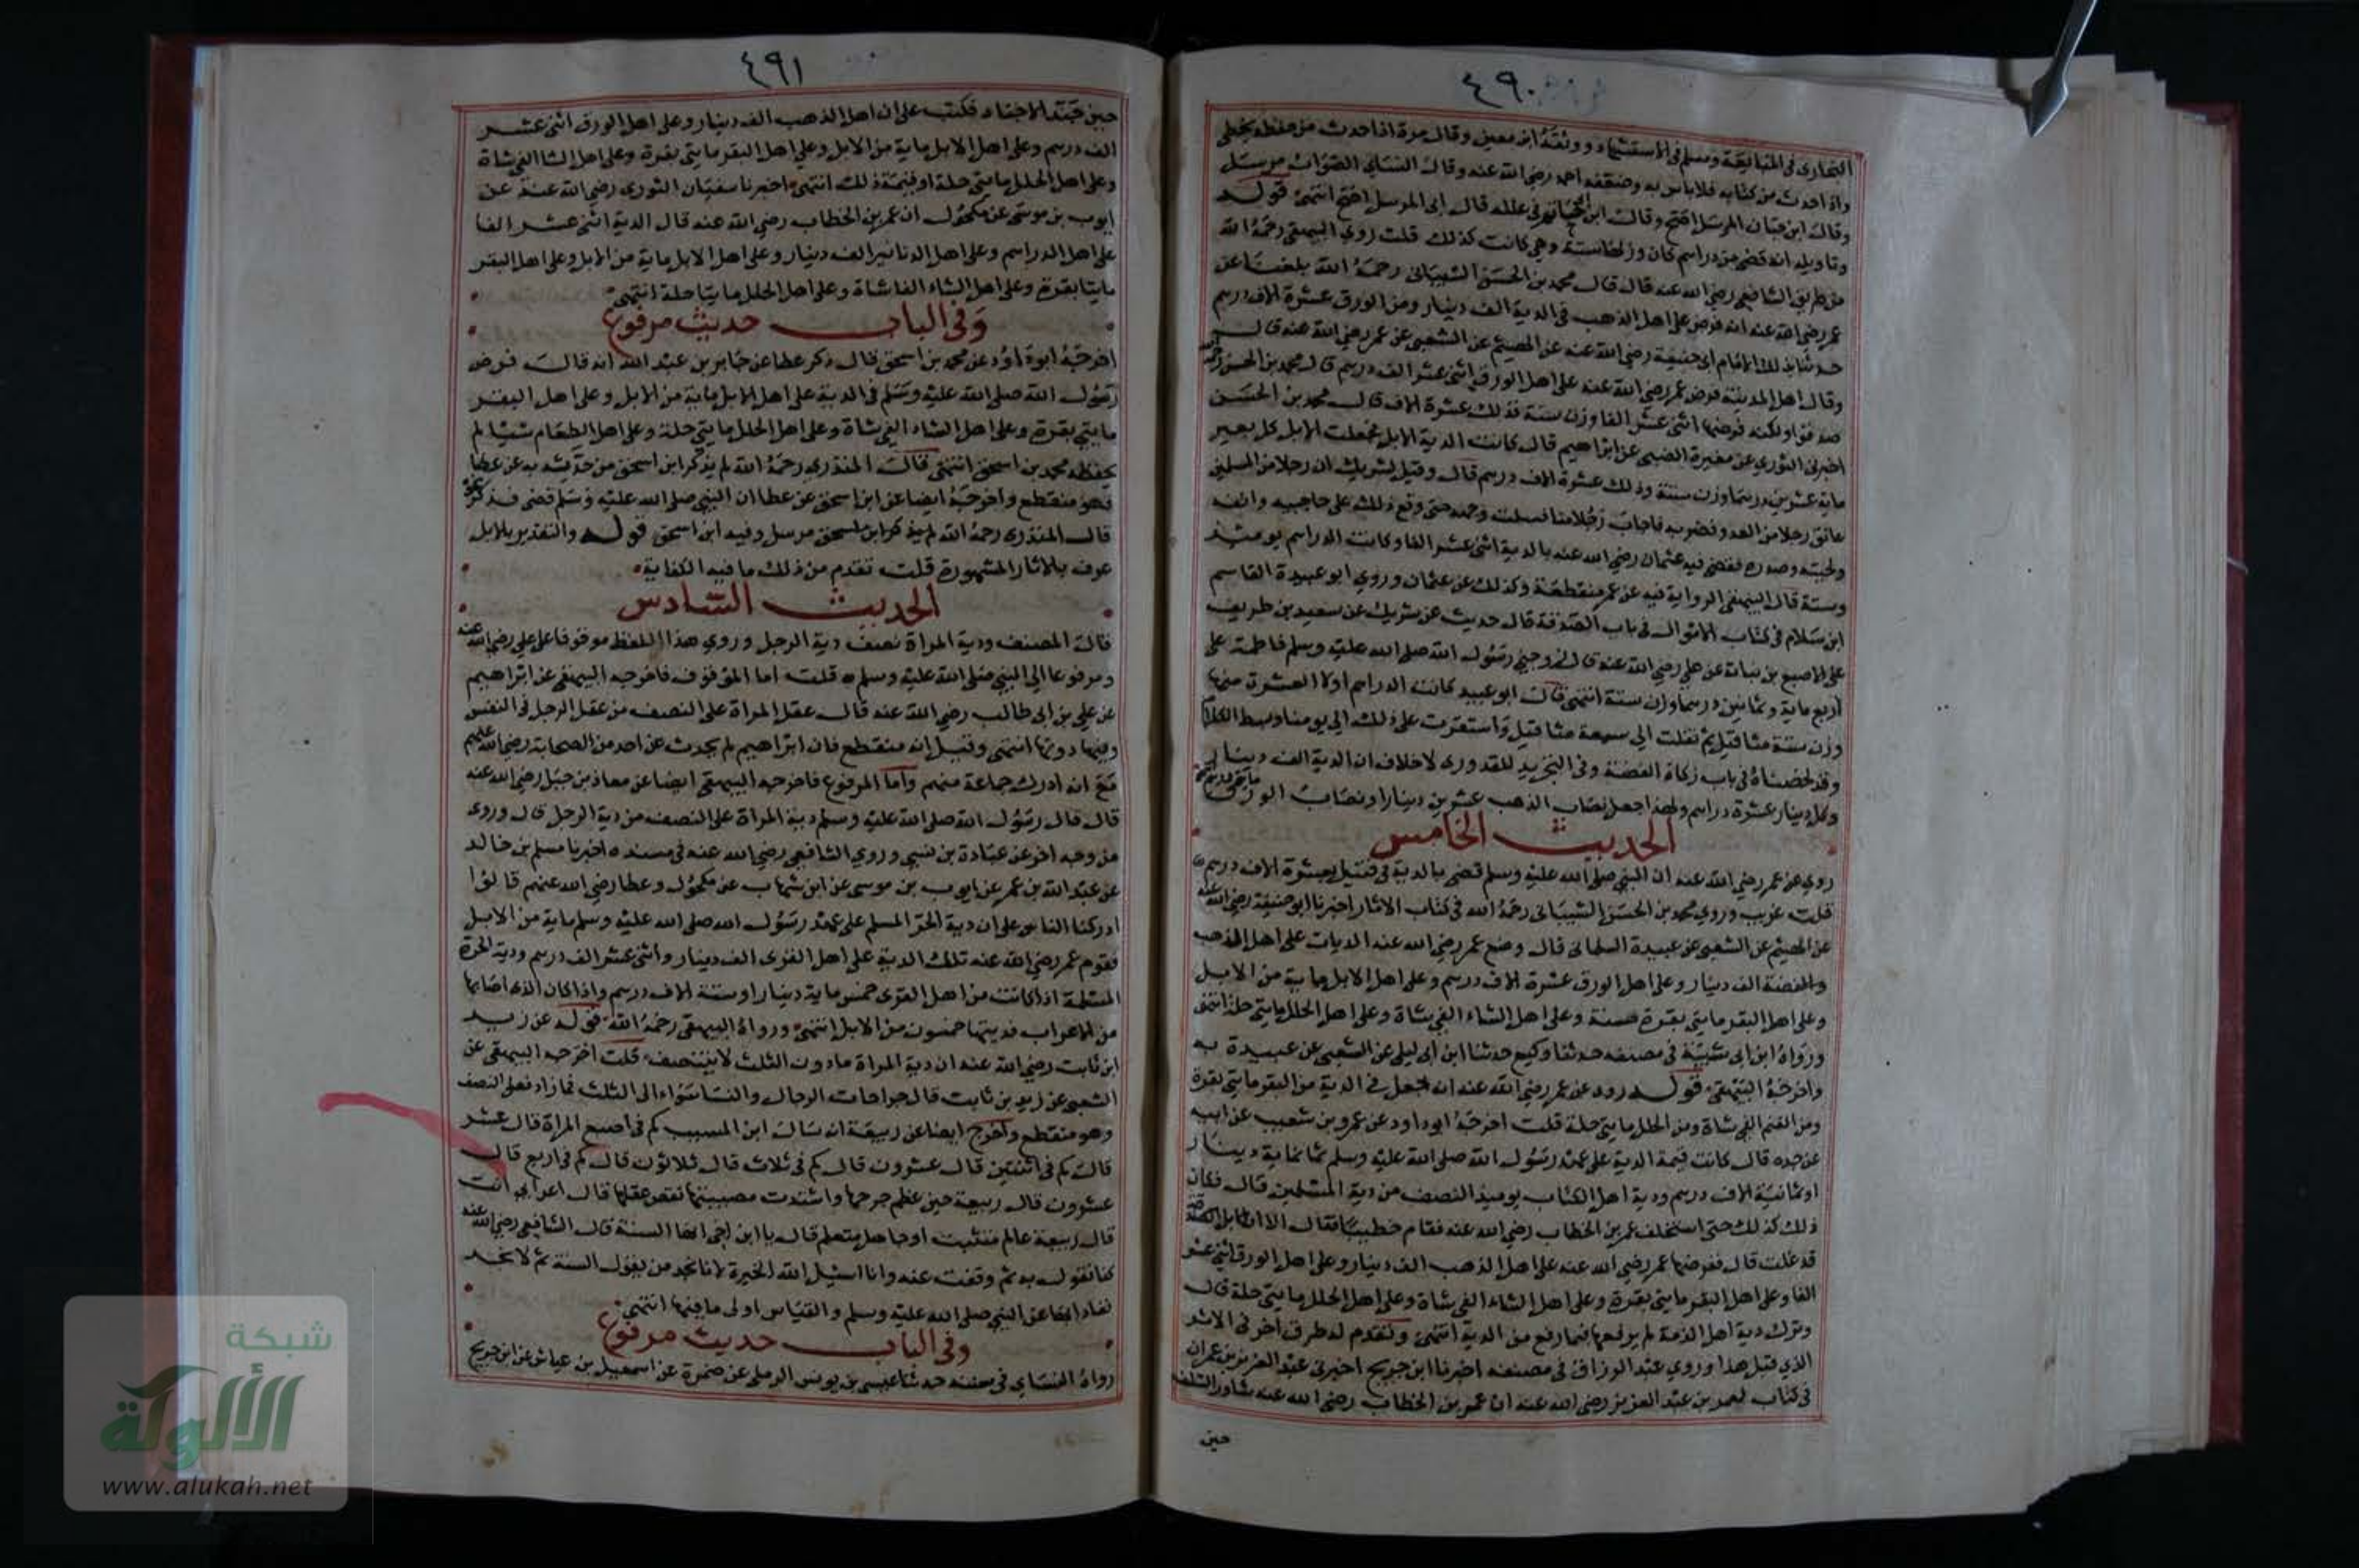 ٤٩٠
البخاري في المتابعة ومسلم في الاستشهاد ووثقه ابن معين وقال مرة اذا حدث من حفظه يخطي
واذا حدث من كتابه فلا باس به وضعفه احمد رضي الله عنه وقال النساي الصواب مرسل
وقال ابن حبان المرسل اصح وقال ابن ابي حاتم في علله قال ابي المرسل اصح انتهى قوله
وتاويله انه قضى من دراهم كان وزنها ستة وهي كانت كذلك قلت روي البيهقي رحمه الله
من طريق الشافعي رضي الله عنه قال قال محمد بن الحسن الشيباني رحمه الله بلغنا عن
عمر رضي الله عنه انه فرض على اهل الذهب في الدية الف دينار ومن الورق عشرة الاف درهم
حدثنا بذلك الامام ابي حنيفة رضي الله عنه عن الهيثم عن الشعبي عن عمر رضي الله عنه قال
وقال اهل المدينة فرض عمر رضي الله عنه على اهل الورق اثنى عشر الف درهم قال محمد بن الحسن رحمه الله
صدقوا ولكنه فرضها اثنى عشر الفا وزن ستة فذلك عشرة الاف قال محمد بن الحسن
اخبرني الثوري عن مغيرة الضبي عن ابراهيم قال كانت الدية الابل فجعلت الابل كل بعير
ماية عشرين درهما وزن ستة وذلك عشرة الاف درهم قال وقيل لشريك ان رجلا من المسلمين
عانق رجلا من العدو فضربه فاصاب رجلا منا فسلت وجهه حتى وقع ذلك على حاجبيه وانفه
ولحيته وصدره فقضى فيه عثمان رضي الله عنه بالدية اثنى عشر الفا وكانت الدراهم يومئذ
وستة قال البيهقي الرواية فيه عن عمر منقطعة وكذلك عن عثمان وروي ابو عبيدة القاسم
ابن سلام في كتاب الاموال في باب الصدقة قال حديث عن شريك عن سعيد بن طريف
على الاصبع بن نباتة عن علي رضي الله عنه قال زوجني رسول الله صلى الله عليه وسلم فاطمة على
اربع ماية وثمانين درهما وزن ستة انتهى قال ابو عبيد كانت الدراهم اولا العشرة منها
وزن ستة مثاقيل ثم نقلت الى سبعة مثاقيل واستقرت على ذلك الى يومنا وبسط الكلام
وقد لخصناه في باب زكاة الفضة وفي التجريد للقدوري لا خلاف ان الدية الف دينار
وكل دينار عشرة دراهم ولهذا جعل نصاب الذهب عشرين دينارا ونصاب الورق مايتي درهم
الحديث الخامس
روي عن عمر رضي الله عنه ان النبي صلى الله عليه وسلم قضى بالدية في قتيل بعشرة الاف درهم
قلت غريب وروي محمد بن الحسن الشيباني رحمه الله في كتاب الاثار اخبرنا ابو حنيفة رضي الله عنه
عن الهيثم عن الشعبي عن عبيدة السلماني قال وضع عمر رضي الله عنه الديات على اهل الذهب
والفضة الف دينار وعلى اهل الورق عشرة الاف درهم وعلى اهل الابل ماية من الابل
وعلى اهل البقر مايتي بقرة مسنة وعلى اهل الشاء الفي شاة وعلى اهل الحلل مايتي حلة انتهى
ورواه ابن ابي شيبة في مصنفه حدثنا وكيع حدثنا ابن ابي ليلى عن الشعبي عن عبيدة به
واخرجه البيهقي قوله روي عن عمر رضي الله عنه انه جعل في الدية من البقر مايتي بقرة
ومن الغنم الفي شاة ومن الحلل مايتي حلة قلت اخرجه ابو داود عن عمرو بن شعيب عن ابيه
عن جده قال كانت قيمة الدية على عهد رسول الله صلى الله عليه وسلم ثمانماية دينار
او ثمانية الاف درهم ودية اهل الكتاب يوميذ النصف من دية المسلمين قال فكان
ذلك كذلك حتى استخلف عمر بن الخطاب رضي الله عنه فقام خطيبا فقال الا ان الابل
قد غلت قال ففرضها عمر رضي الله عنه على اهل الذهب الف دينار وعلى اهل الورق اثني عشر
الفا وعلى اهل البقر مايتي بقرة وعلى اهل الشاء الفي شاة وعلى اهل الحلل مايتي حلة قال
وترك دية اهل الذمة لم يرفعها فيما رفع من الدية انتهى وتقدم له طرق اخر في الاثر
الذي قبل هذا وروي عبد الرزاق في مصنفه اخبرنا ابن جريج اخبرني عبد العزيز بن عمران
في كتاب لعمر بن عبد العزيز رضي الله عنه ان عمر بن الخطاب رضي الله عنه شاور السلف
حين
٤٩١
حين جند الاجناد فكتب على ان اهل الذهب الف دينار وعلى اهل الورق اثنى عشر
الف درهم وعلى اهل الابل ماية من الابل وعلى اهل البقر مايتي بقرة وعلى اهل الشا الفي شاة
وعلى اهل الحلل مايتي حلة او قيمة ذلك انتهى اخبرنا سفيان الثوري رضي الله عنه عن
ايوب بن موسى عن مكحول ان عمر بن الخطاب رضي الله عنه قال الدية اثنى عشر الفا
على اهل الدراهم وعلى اهل الدنانير الف دينار وعلى اهل الابل ماية من الابل وعلى اهل البقر
مايتا بقرة وعلى اهل الشاء الفا شاة وعلى اهل الحلل مايتا حلة انتهى
وفي الباب حديث مرفوع
اخرجه ابو داود عن محمد بن اسحق قال ذكر عطا عن جابر بن عبد الله انه قال فرض
رسول الله صلى الله عليه وسلم في الدية على اهل الابل ماية من الابل وعلى اهل البقر
مايتي بقرة وعلى اهل الشاء الفي شاة وعلى اهل الحلل مايتي حلة وعلى اهل الطعام شيا لم
يحفظه محمد بن اسحق انتهى قال المنذري رحمه الله لم يذكر ابن اسحق من حديثه به عن عطا
فهو منقطع واخرجه ايضا عن ابن اسحق عن عطا ان النبي صلى الله عليه وسلم قضى فذكر نحوه
قال المنذري رحمه الله لم يذكر ابن اسحق مرسل وفيه ابن اسحق قوله والتقدير بالابل
عرف بالاثار المشهورة قلت تقدم من ذلك ما فيه الكفاية
الحديث السادس
قال المصنف ودية المراة نصف دية الرجل وروي هذا اللفظ موقوفا على علي رضي الله عنه
ومرفوعا الى النبي صلى الله عليه وسلم قلت اما الموقوف فاخرجه البيهقي عن ابراهيم
عن علي بن ابي طالب رضي الله عنه قال عقل المراة على النصف من عقل الرجل في النفس
وفيما دونها انتهى وقيل انه منقطع فان ابراهيم لم يحدث عن احد من الصحابة رضي الله عنهم
مع انه ادرك جماعة منهم واما المرفوع فاخرجه البيهقي ايضا عن معاذ بن جبل رضي الله عنه
قال قال رسول الله صلى الله عليه وسلم دية المراة على النصف من دية الرجل قال وروي
من وجه اخر عن عبادة بن نسي وروي الشافعي رضي الله عنه في مسنده اخبرنا مسلم بن خالد
عن عبد الله بن عمر عن ايوب بن موسى عن ابن شهاب عن مكحول وعطا رضي الله عنهم قالوا
ادركنا الناس على ان دية الحر المسلم على عهد رسول الله صلى الله عليه وسلم ماية من الابل
فقوم عمر رضي الله عنه تلك الدية على اهل القرى الف دينار واثنى عشر الف درهم ودية الحرة
المسلمة اذا كانت من اهل القرى خمس ماية دينار او ستة الاف درهم واذا كان الذي اصابها
من الاعراب فديتها خمسون من الابل انتهى ورواه البيهقي رحمه الله قوله عن زيد
ابن ثابت رضي الله عنه ان دية المراة ما دون الثلث لا يتنصف قلت اخرجه البيهقي عن
الشعبي عن زيد بن ثابت قال جراحات الرجال والنسا سواء الى الثلث فما زاد فعلى النصف
وهو منقطع واخرج ايضا عن ربيعة انه سال ابن المسيب كم في اصبع المراة قال عشر
قال كم في اثنتين قال عشرون قال كم في ثلاث قال ثلاثون قال كم في اربع قال
عشرون قال ربيعة حين عظم جرحها واشتدت مصيبتها نقص عقلها قال اعرابي انت
قال ربيعة عالم متثبت او جاهل متعلم قال يا ابن اخي انها السنة قال الشافعي رضي الله عنه
كنا نقول به ثم وقفت عنه وانا اسئل الله الخيرة لانا نجد من يقول السنة ثم لا نجد
نفاذا بها عن النبي صلى الله عليه وسلم والقياس اولى ما فيها انتهى
وفي الباب حديث مرفوع
رواه النساي في سننه حدثنا عيسى بن يونس الرملي عن ضمرة عن اسمعيل بن عياش عن ابن جريج
شبكة
الألوكة
www.alukah.net